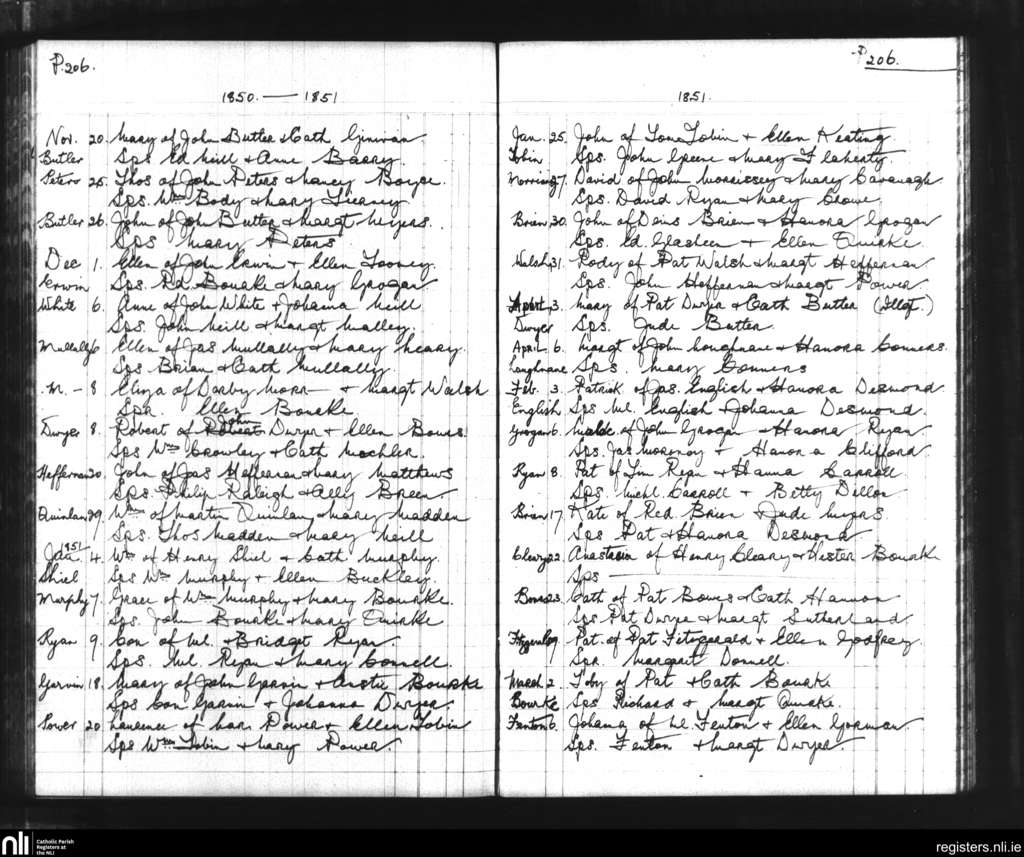 P.206.
1850. — 1851
Nov. 20. Mary of John Butler & Cath
Butler Sps Ed Neill & Anne Barry
Peters 25. Thos of John Peters & Nancy Boyce.
Sps. Wm Body & Mary Tierney
Butler 26. John of John Butler & Margt Meyers.
Sps Mary Peters
Dec 1. Ellen of John Erwin + Ellen Tooney.
Erwin Sps. Rd. Bourke & Mary Grogan
White 6. Anne of John White + Johanna Neill
Sps. John Neill & Margt Malley.
Mullally 6 Ellen of Jas Mullally & Mary Neary.
Sps. Brian & Cath Mullally.
M. - 8 Eliza of Darby Moor— & Margt Walsh
Spr. Ellen Bourke
John
Dwyer 8. Robert of Robert Dwyer + Ellen Bowes.
Sps Wm Crowley & Cath Mockler.
Heffernan 20. John of Jas Heffernan & Mary Matthews
Sps. Philip Raleigh & Ally Breen
Quinlan 29 Wm of Martin Quinlan & Mary Madden
Sps. Thos Madden & Mary Neill
1851
Jan. 4. Wm of Henry Shiel & Cath Murphy.
Shiel Sps Wm Murphy + Ellen Buckley.
Murphy 7. Grace of Wm Murphy & Mary Bourke.
Sps. John Bourke & Mary Quirke
Ryan 9. Con of Ml. & Bridget Ryan.
Sps. Ml. Ryan & Mary Connell.
Garvin 18. Mary of John Garvin + Anstie Bourke
Sps Con Garvin & Johanna Dwyer.
Power 20 Laurence of Lar. Power & Ellen Tobin
Sps Wm Tobin & Mary Power
P 206.
1851.
Jan. 25. John of Tom Tobin + Ellen Keating
Tobin Sps. John Greene & Mary Flaherty.
27. David of John Morrissey & Mary Cavanagh
Sps. David Ryan & Mary Crowe.
Brien 30. John of Denis Brien & Hanora Grogan
Sps. Ed. Glasheen + Ellen Quirke.
Walsh 31. Rody of Pat Walsh & Margt Heffernan
Sps. John Heffernan & Margt Power
3. Mary of Pat Dwyer & Cath Butler (Illegt.)
Dwyer Sps. Jude Butler.
April 6. Margt of John Loughnane & Hanora Conners.
Loughnane Sps. Mary Conners
Feb. 3. Patrick of Jas. English & Hanora Desmond.
English Sps Ml. English & Johanna Desmond.
Grogan 6. of John Grogan & Hanora Ryan.
Sps. Jas Moroney + Hanora Clifford.
Ryan 8. Pat of Tim Ryan & Hanna Carroll
Sps. Michl Carroll + Betty Dillon
Brien 17. Kate of Red. Brien & Jude Myers
Sps Pat & Hanora Desmond.
Cleary 22. Anastasia of Henry Cleary & Hester Bourk
Sps —
Bowes 23. Cath of Pat Bowes & Cath Hannon
Sps Pat Dwyer & Margt Sutherland.
Fitzgerald 9 Pat. of Pat Fitzgerald & Ellen Godfrey
Spr. Margaret Donnell.
March 2. Toby of Pat & Cath Bourke
Bourke Sps Richard & Margt Quirke.
Fenton 6. Johana of Ml. Fenton & Ellen Gorman
Sps. Fenton & Margt Dwyer.
nli
Catholic Parish
Registers at
the NLI
registers.nli.ie